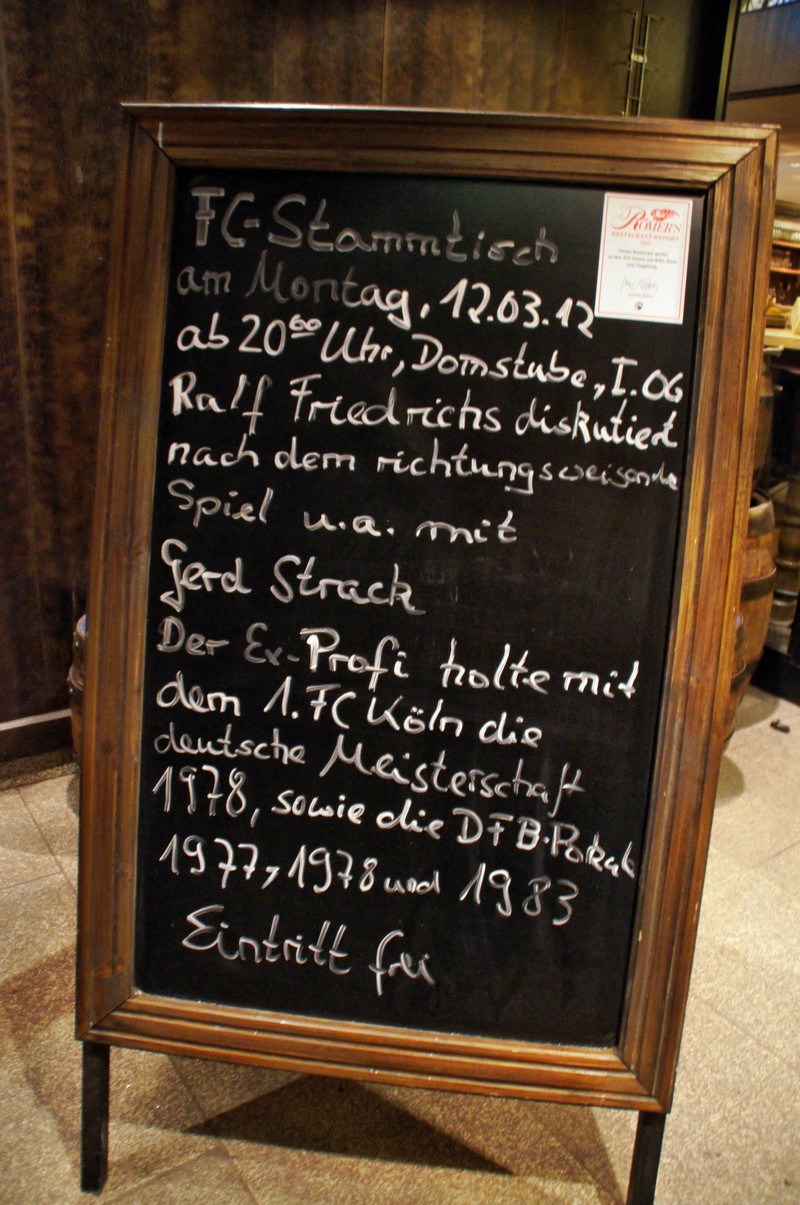 FC-Stammtisch
am Montag, 12.03.12
ab 20⁰⁰ Uhr, Domstube, I.OG
Ralf Friedrichs diskutiert
nach dem richtungsweisenden
Spiel u.a. mit
Gerd Strack
Der Ex-Profi holte mit
dem 1.FC Köln die
deutsche Meisterschaft
1978, sowie die DFB-Pokale
1977, 1978 und 1983
Eintritt frei
RÖMER'S
RESTAURANT REPORT